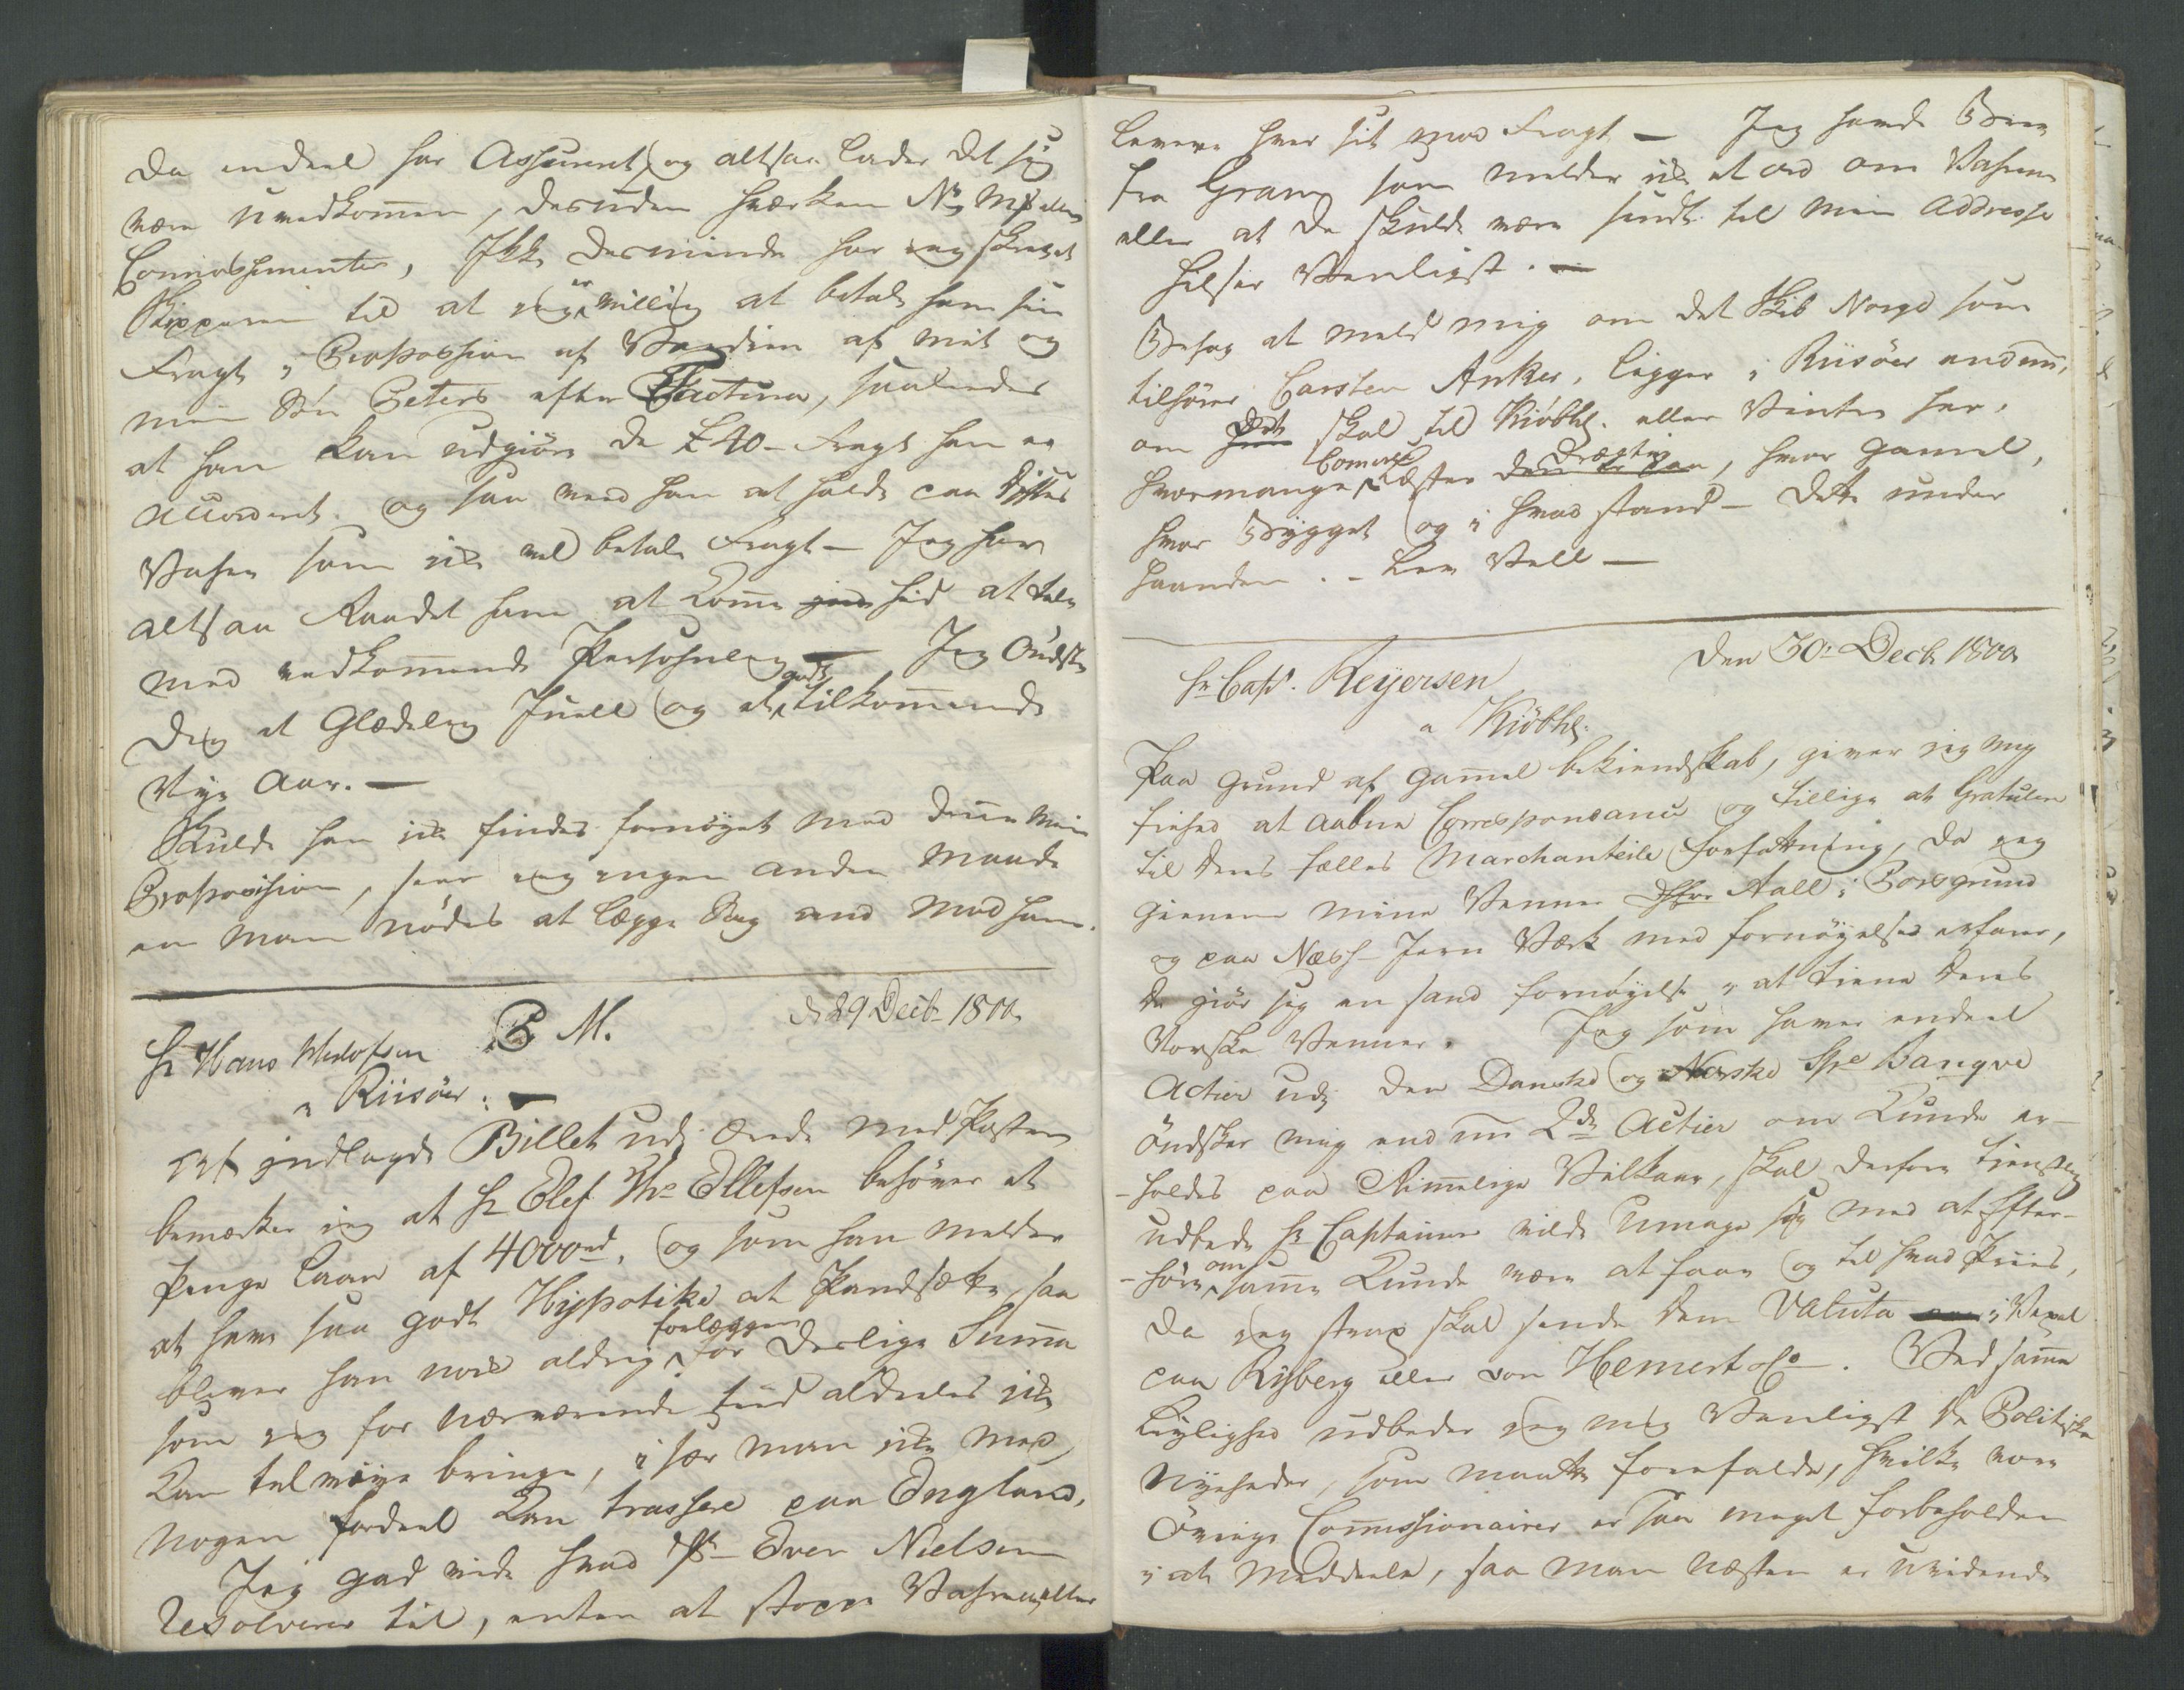 da endeel har Assurent, og altsaa lader det sig
være uvedkommen, desuden hverken No, M/ eller
Connossementer, Ikke desminde har jeg skrevet
Skipperen til at jeg er villig at betale ham sin
Fragt i Proportion af Værdien af mit og
min Søn Peters efter Factura, saaledes
at han kan udgiøre de £40 - Fragt han er
accorderet. og saa maa han at holde paa disses
Vahre som ike vil betale Fragt - Jeg har
altsaa Raadet ham at komme hid at tale
med vedkommende Persohnlig — Jeg Öndsker
Dig et Glædelig Juell og et godt tilkommende
Nye Aar. —
Skulde han ike findes fornöyet med denne min
Proposision, seer jeg ingen anden Maade
en man nödes at lægge Sag and mod ham.
d 29 Decb 1800.
P M.
Hr Hans
a Riisöer. —
Af indlagde Billet udi Brede med Posten
bemærker jeg at Hr Elef Ths Ellefsen behöver et
Penge Laan af 4000rd, og som han melder
at have saa godt Hypotike at Pandsætte, saa
bliver han nok aldrig forlæggen for deslige Summa
som jeg for nærværende tiid aldeeles ike
kan tilveiye bringe, i sær man ike med
nogen fordeel kan trassere paa England.
Jeg gad vide hvad Sr Even Nielsen
resolverer til, enten at stoppe Vahrene eller
levere hver sit mod Fragt — Jeg havde Brev
fra Gram som melder ike et ord om Vahrene
eller at de skulde være sendt til min Addresse
hilser Venligst. —
Behag at meld mig om det Skib Norge som
tilhörer Carsten Anker, ligger i Riisöer endnu,
om det skal til Kiöbhg. eller Vinter her,
hvormange Comerce læster drægtig, hvor gamel,
hvor Bygget og i hvad stand — dette under
haanden. - Lev Vell —
Den 30 Decb 1800
Hr Capt. Reyersen
a Kiöbhg.
Paa grund af gammel bekiendskab, giver jeg mig
friehed at aabne Correspondance og tillige at Gratulere
til Deres fælles Marchanteile forfattning, da jeg
gienem mine Venner Hrr Aall i Porsgrund
og paa Næss Jern Værk med fornöyelse erfarer,
De giör sig en sand fornöyelse i at tiene Deres
Norske Venner. Jeg som haver endeel
Actier udj den Danske og Norske Spe Banqve
öndsker mig end nu 2de Actier om kunde er-
-holdes paa Rimmelige Vilkaar, skal derfore tienstlig
udbede Hr Captainen vilde Umage sig med at Efter-
-höre om samme kunde være at faae og til hvad Priis,
da jeg strax skal sende Dem Valuta i Vexel
paa Ryberg eller von Hemert & Co. Ved samme
Leylighed udbeder jeg mig Venligst de Politiske
Nyeheder, som maatte forefalde, hvilke vore
Övrige Commissionairer er saa meget forbeholden
i at Meddeele, saa man næsten er uvidende